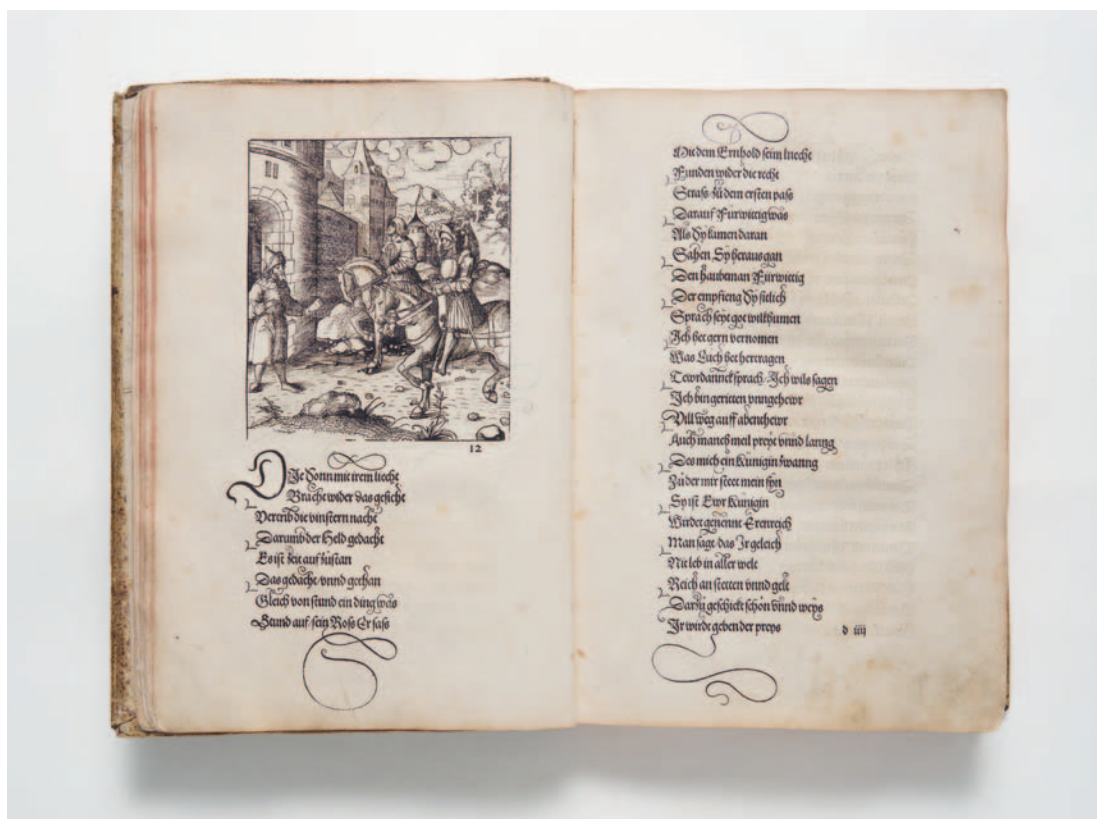 12
Die Sonn mit irem liecht
Bracht wider das gesicht
Vertrib die vinstern nacht
Darumb der Held gedacht
Es ist zeit auf zůstan
Das gedacht vnnd gethan
Gleich von stund ein ding was
Stund auf sein Ross Er sass
Mit dem Ernhold seim knecht
Funden wider die recht
Strass zů dem ersten pass
Darauf Fürwittig was
Als Sy kamen daran
Sahen Sy heraus gan
Den haubtman Fürwittig
Der empfieng Sy sitlich
Sprach seyt got wilkhumen
Ich het gern vernomen
Was Euch het hertragen
Tewrdannck sprach Ich wils sagen
Ich bin geritten vnngehewr
Vill weg auff abenthewr
Auch manch meil preyt vnnd lanng
Des mich ein Künigin zwanng
Zů der mir steet mein syn
Sy ist Ewr Künigin
Wirdet genennt Erenreich
Man sagt das Ir geleich
Nit leb in aller welt
Reich an stetten vnnd gelt
Darzů geschickt schön vnnd weys
Ir wirdt geben der preys
d iiij